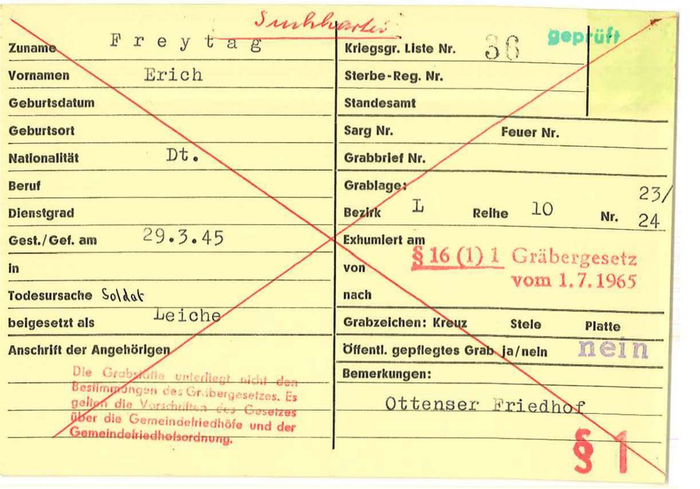 Suchkartei
geprüft
Zuname Freytag
Vornamen Erich
Geburtsdatum
Geburtsort
Nationalität Dt.
Beruf
Dienstgrad
Gest./Gef. am 29.3.45
in
Todesursache Soldat
beigesetzt als Leiche
Anschrift der Angehörigen
Die Grabstätte unterliegt nicht den
Bestimmungen des Gräbergesetzes. Es
gelten die Vorschriften des Gesetzes
über die Gemeindefriedhöfe und der
Gemeindefriedhofsordnung.
Kriegsgr. Liste Nr. 36
Sterbe-Reg. Nr.
Standesamt
Sarg Nr. Feuer Nr.
Grabbrief Nr.
Grablage:
Bezirk L Reihe 10 Nr. 23/
24
Exhumiert am
§ 16 (1) 1 Gräbergesetz
von
vom 1.7.1965
nach
Grabzeichen: Kreuz Stele Platte
Öffentl. gepflegtes Grab ja/nein nein
Bemerkungen:
Ottenser Friedhof
§ 1